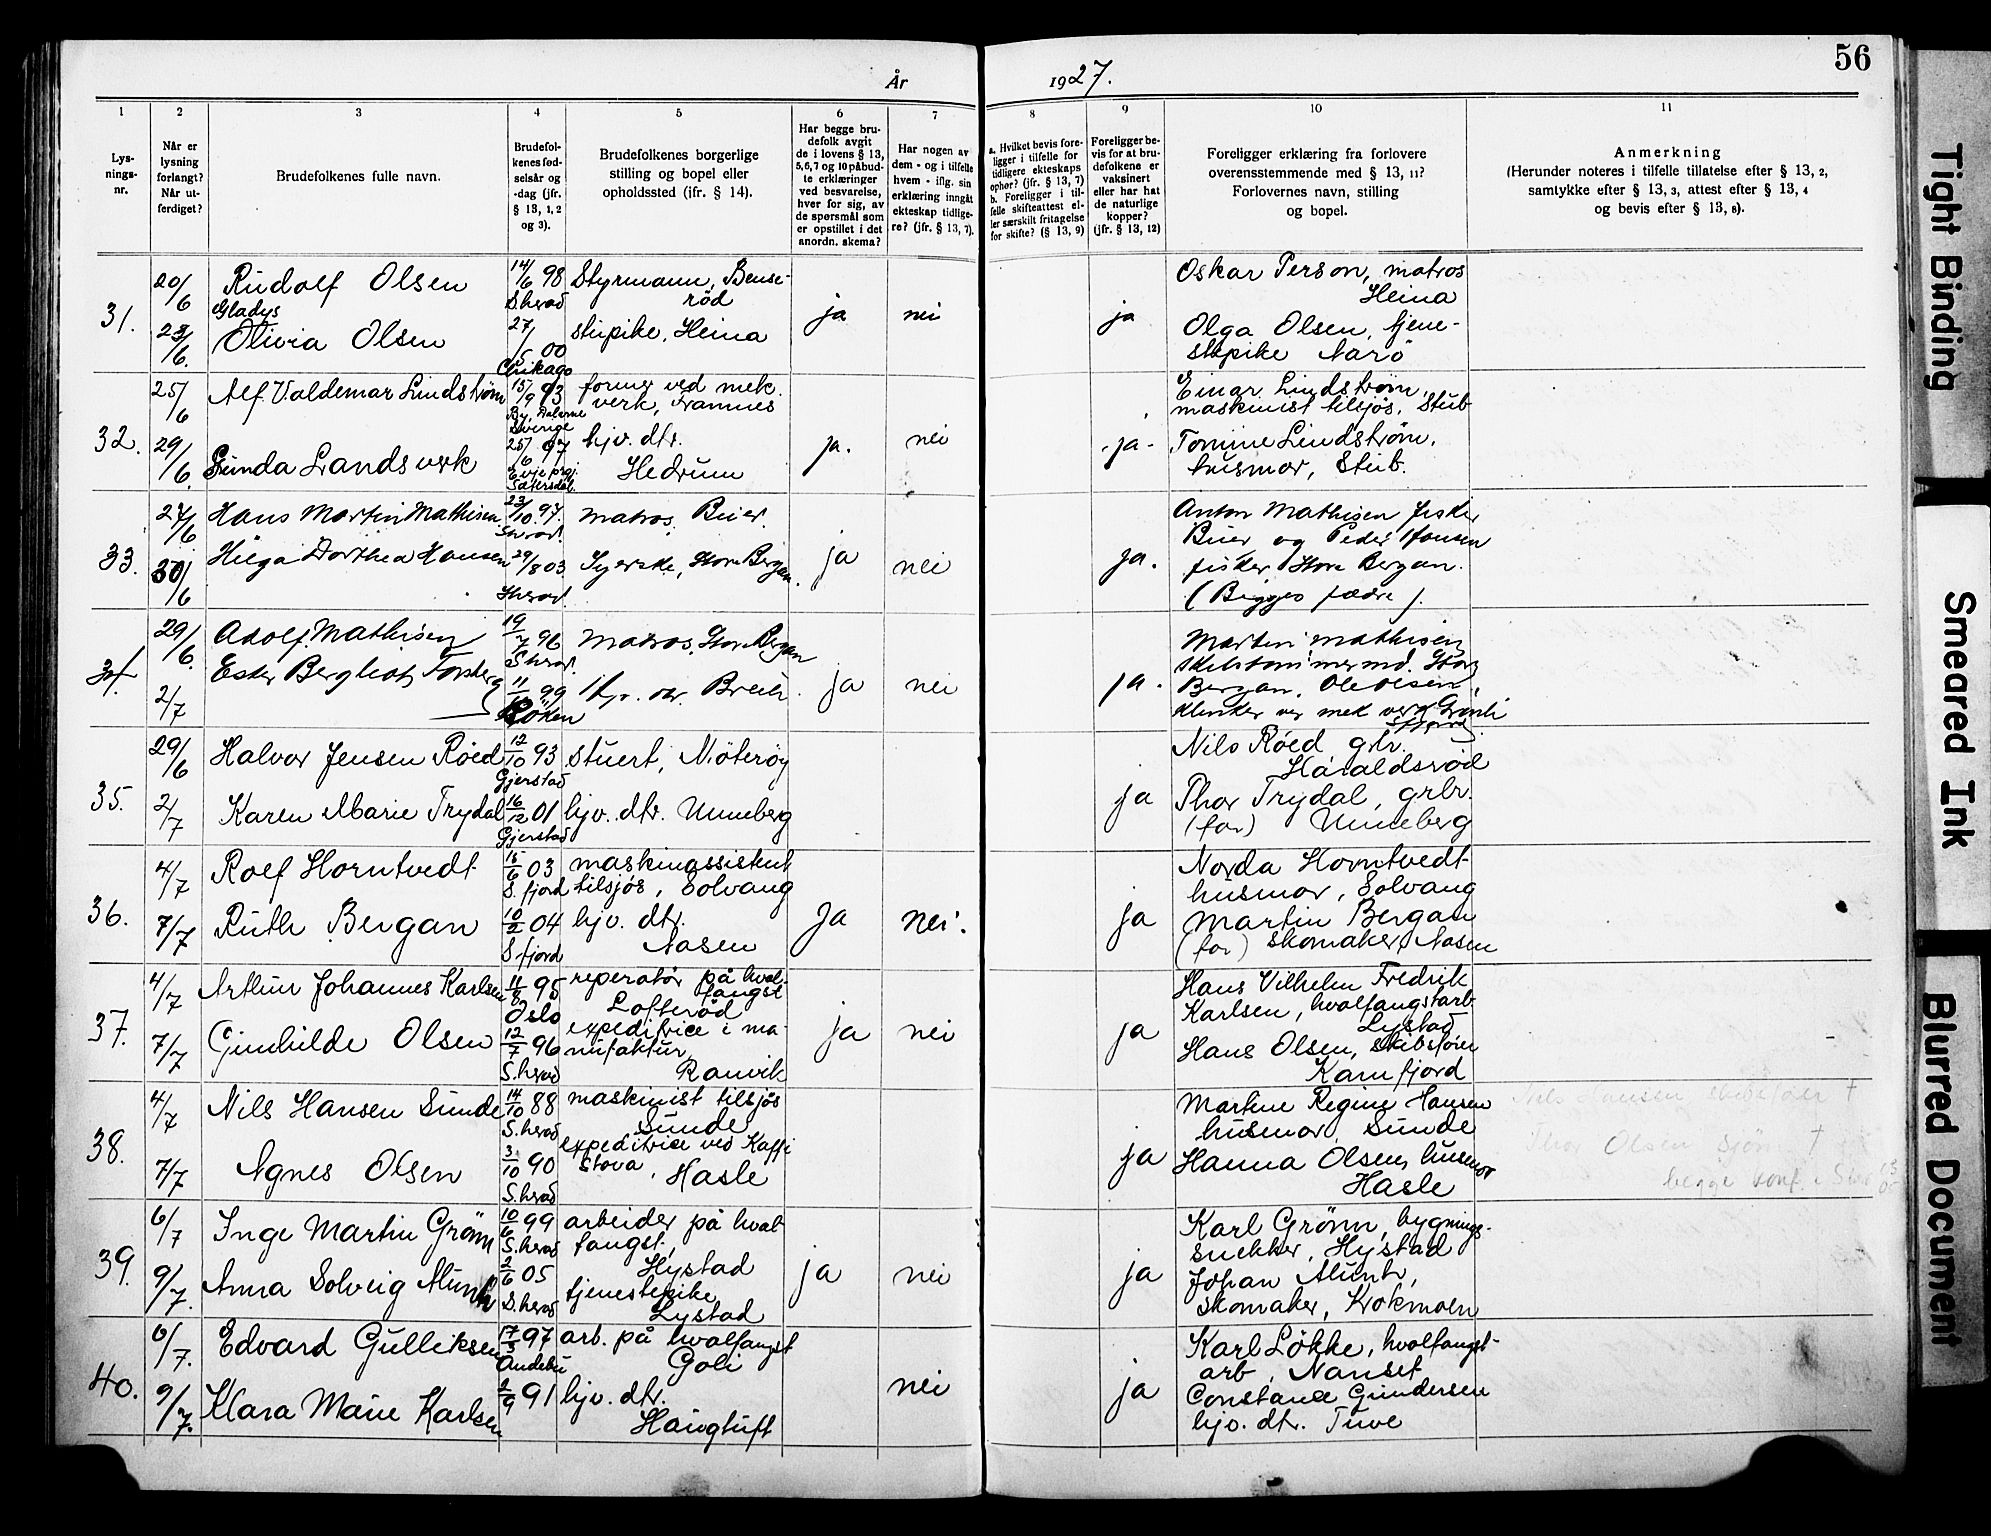 56
År 1927.
1 2 3 4 5 6 7 8 9 10 11
Lys-
nings-
nr.
Når er
lysning
forlangt?
Når ut-
ferdiget?
Brudefolkenes fulle navn.
Brudefol-
kenes fød-
selsår og
-dag (jfr.
§ 13, 1, 2
og 3).
Brudefolkenes borgerlige
stilling og bopel eller
opholdssted (ifr. § 14).
Har begge bru-
defolk avgit
de i lovens § 13,
5,6,7 og 10 påbud-
te erklæringer
ved besvarelse,
hver for sig, av
de spørsmål som
er opstillet i det
anordn. skema?
Har nogen av
dem - og i tilfelle
hvem - iflg. sin
erklæring inngåt
ekteskap tidlige-
re? (jfr. § 13, 7).
a. Hvilket bevis fore-
ligger i tilfelle for
tidligere ekteskaps
ophør? (jfr. § 13, 7)
b. Foreligger i til-
felle skifteattest el-
ler særskilt fritagelse
for skifte? (§ 13, 9)
Foreligger be-
vis for at bru-
defolkene er
vaksinert
eller har hat
de naturlige
kopper?
(jfr. § 13, 12)
Foreligger erklæring fra forlovere
overensstemmende med § 13, 11?
Forlovernes navn, stilling
og bopel.
Anmerkning
(Herunder noteres i tilfelle tillatelse efter § 13, 2,
samtykke efter § 13, 3, attest efter § 13, 4
og bevis efter § 13, 8).
31.
20/6
23/6.
Rudolf Olsen
Gladys
Olivia Olsen
14/6 98
S.herad
27/5 00
Chikago
Styrmann, Bense-
rød
stupike, Heina
ja
nei
ja
Oskar Person, matros
Heina
Olga Olsen, tjene-
stepike Narö
32.
25/6
29/6.
Alf. Valdemar Lindstrøm
Gunda Landsverk
15/9 93
By, Dalarne
Sverige
25/6 97
Evje prgj.
Sætersdal.
former ved mek.
verk, Framnes
hjv. dtr.
Hedrum
ja.
nei
ja.
Einar Lindstrøm,
maskinist tilsjøs, Stub
Tomine Lindstrøm,
husmor, Stub.
33.
27/6
30/6
Hans Martin Mathisen
Helga Dorthea Hansen
23/10 97.
S.herad.
29/8 03
S.herad.
matros, Buer.
Syerske, Store Bergan.
ja
nei
ja.
Anton Mathisen fisker
Buer og Peder Hansen
fisker Store Bergan.
(Begges fædre).
34.
29/6.
2/7
Adolf. Mathisen
Ester Bergliot Forsberg
19/7 96
S.herad.
11/ 99
Röken
Matros, Store Bergan
ja
nei
ja.
Martin Mathisen
Bergan. Ole Olsen,
35.
29/6
2/7
Halvor Jensen Röed
Karen Marie Trydal
12/10 93
Gjerstad
16/12 01
Gjerstad
stuert, Nöteröy
hjv. dtr. Unneberg
ja
Nils Röed, grbr.
Haraldsrød
Thor Trydal, grbr.
(far) Unneberg
36.
4/7
7/7
Rolf Horntvedt
Ruth Bergan
15/6 03
S.fjord
10/2 04
S.fjord
maskinassistent
tilsjøs, Solvang
hjv. dtr.
Nasen
Ja
nei.
ja
Norda Horntvedt
husmor, Solvang
Martin Bergan
(far) skomaker, Nasen
37.
4/7
7/7
Arthur Johannes Karlsen
Gunhilde Olsen
11/8 95
Oslo
12/7 96
S.herad
reperatør på hval-
fangst
Lofterød
expeditrice i ma-
nufaktur,
Ranvik
ja
nei
ja
Hans Vilhelm Fredrik
Karlsen, hvalfangstarb.
Lystad
Hans Olsen, skibsfører
Kamfjord
38.
4/7
7/7
Nils Hansen Sunde
Agnes Olsen
14/10 88
S.herad
3/10 90
S.herad
maskinist tilsjøs
Sunde
expeditrice ved Kaffi
Stova, Hasle
ja
Martine Regine Hansen
husmor, Sunde
Hanna Olsen, husmor
Hasle
Nils Hansen skibsfører †
Thor Olsen sjöm †
begge
39.
6/7
9/7.
Inge Martin Grönn
Anna Solveig Munk
10/6 99
S.herad
2/6 05
S.herad
arbeider på hval-
fangst,
Hystad
tjenestepike
Lystad
ja
nei
ja
Karl Grönn, bygnings-
snekker, Hystad
Johan Munk,
skomaker, Krokmoen
40.
6/7.
9/7.
Edvard Gulliksen
Klara Marie Karlsen
17/3 97
Andebu
2/9 91
arb. på hvalfangst
Goli
hjv. dtr.
Haugtuft
nei
ja
Karl Løkke, hvalfangst-
arb, Nanset
Constance Gundersen
hjv. dtr. Tuve
Tight Binding
Smeared Ink
Blurred Document